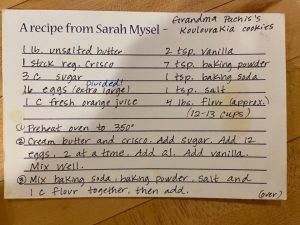 A recipe from Sarah Mysel - Grandma Pachis's
Koulourakia cookies
1 lb. unsalted butter
2 tsp. vanilla
1 stick reg. crisco
7 tsp. baking powder
3 c sugar
1 tsp. baking soda
divided!
16 eggs (extra large)
1 tsp. salt
1 c fresh orange juice
4 lbs. flour (approx.)
(12-13 cups)
① Preheat oven to 350°
② Cream butter and crisco. Add sugar. Add 12
eggs, 2 at a time. Add OJ. Add vanilla.
Mix well.
③ Mix baking soda, baking powder, salt and
1 c flour together, then add.
(over)